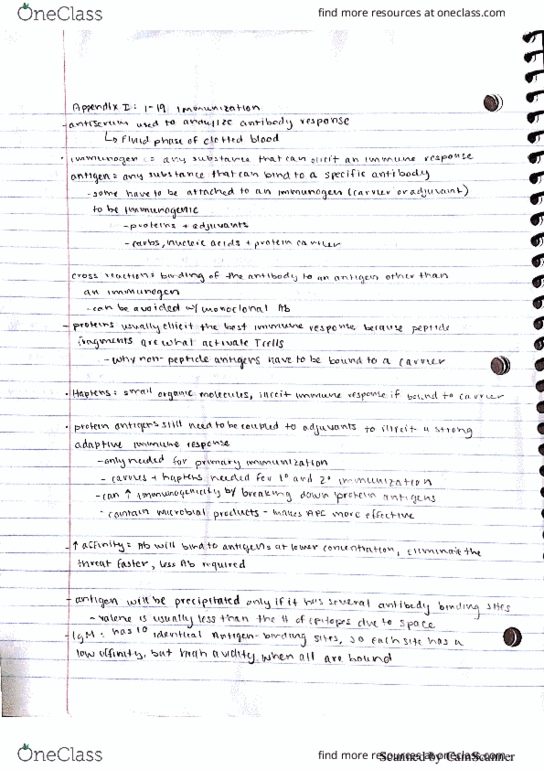 OneClass
find more resources at oneclass.com
Appendix I: 1-19 immunization
-antiserum used to analyze antibody response
↳ fluid phase of clotted blood
· immunogen := any substance that can elicit an immune response
antigen = any substance that can bind to a specific antibody
-some have to be attached to an immunogen (carrier or adjuvant)
to be immunogenic
-proteins + adjuvants
-carbs, nucleic acids + protein carrier
cross reactions: binding of the antibody to an antigen other than
an immunogen
-can be avoided w/ monoclonal Ab
-proteins usually elicit the best immune response because peptide
fragments are what activate T cells
-why non-peptide antigens have to be bound to a carrier
· Haptens: small organic molecules, immune response if bound to carrier
· protein antigens still need to be coupled to adjuvants to a strong
adaptive immune response
-only needed for primary immunization
- + haptens needed for 1° and 2° immunization
-can ↑ immunogenicity by breaking down protein antigens
-contain microbial products - makes APC more effective
-↑ affinity = Ab will bind to antigens at lower concentration, eliminate the
threat faster, less Ab required
-antigen will be precipitated only if it has several antibody binding sites
- is usually less than the # of epitopes due to space
-IgM: has 10 identical antigen-binding sites, so each site has a
low affinity, but high avidity when all are bound
OneClass
find more resources at oneclass.com
Scanned by CamScanner